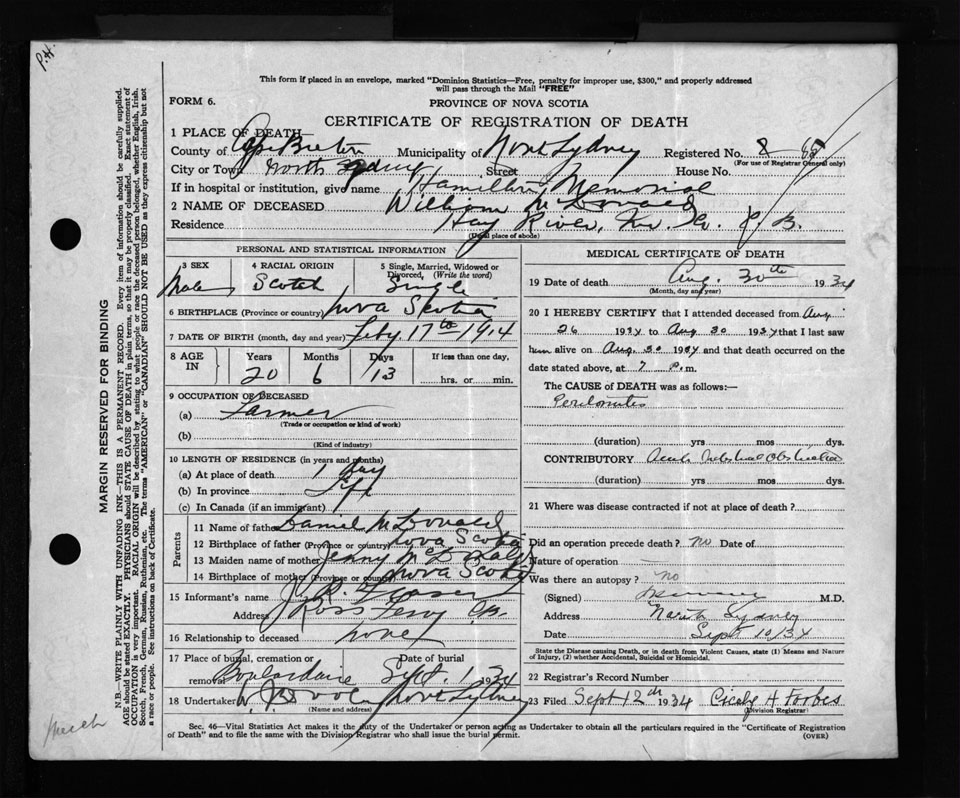 P.H.
This form if placed in an envelope, marked "Dominion Statistics—Free, penalty for improper use, $300," and properly addressed
will pass through the Mail "FREE"
FORM 6.
PROVINCE OF NOVA SCOTIA
CERTIFICATE OF REGISTRATION OF DEATH
1 PLACE OF DEATH—
County of Cape Breton Municipality of North Sydney Registered No. 8
(For use of Registrar General only)
City or Town North Sydney Street House No.
If in hospital or institution, give name Hamilton Memorial
2 NAME OF DECEASED William McDonald
Residence Hay River, Inv. Co. C.B.
(Usual place of abode)
PERSONAL AND STATISTICAL INFORMATION
3 SEX Male
4 RACIAL ORIGIN Scotch
5 Single, Married, Widowed or Divorced, (Write the word) Single
6 BIRTHPLACE (Province or country) Nova Scotia
7 DATE OF BIRTH (month, day and year) Feby. 17th 1914
8 AGE IN Years Months Days If less than one day,
20 6 13 hrs. or min.
9 OCCUPATION OF DECEASED
(a) Farmer
(Trade or occupation or kind of work)
(b)
(Kind of industry)
10 LENGTH OF RESIDENCE (in years and months)
(a) At place of death 1 day
(b) In province Life
(c) In Canada (if an immigrant)
Parents
11 Name of father Daniel McDonald
12 Birthplace of father (Province or country) Nova Scotia
13 Maiden name of mother Jenny
14 Birthplace of mother (Province or country) Nova Scotia
15 Informant's name J. R. Fraser
Address Ross Ferry C.B.
16 Relationship to deceased none
17 Place of burial, cremation or removal Boulardarie Date of burial Sept. 1 1934
18 Undertaker North Sydney
(Name and address)
MEDICAL CERTIFICATE OF DEATH
19 Date of death Aug. 30th 1934
(Month, day and year)
20 I HEREBY CERTIFY that I attended deceased from Aug.
26 1934 to Aug 30 1934 that I last saw
him alive on Aug. 30 1934 and that death occurred on the
date stated above, at 7 P.m.
The CAUSE of DEATH was as follows:—
Peritonitis
(duration) yrs mos dys.
CONTRIBUTORY Acute Intestinal Obstruction
(duration) yrs mos dys.
21 Where was disease contracted if not at place of death ?
Did an operation precede death ? no Date of
Nature of operation
Was there an autopsy ? no
(Signed) M.D.
Address North Sydney
Date Sept 10/34
State the Disease causing Death, or in death from Violent Causes, state (1) Means and Nature
of Injury, (2) whether Accidental, Suicidal or Homicidal.
22 Registrar's Record Number
23 Filed Sept 12th 1934 H Forbes
(Division Registrar)
Sec. 46—Vital Statistics Act makes it the duty of the Undertaker or person acting as Undertaker to obtain all the particulars required in the "Certificate of Registration
of Death" and to file the same with the Division Registrar who shall issue the burial permit.
(OVER)
MARGIN RESERVED FOR BINDING
N.B.—WRITE PLAINLY WITH UNFADING INK—THIS IS A PERMANENT RECORD. Every item of information should be carefully supplied.
AGE should be stated EXACTLY. PHYSICIANS should STATE CAUSE OF DEATH in plain terms, so that it may be properly classified. Exact statement of
OCCUPATION is very important. RACIAL ORIGIN will be described by stating to what people or race the deceased person belonged, whether English, Irish,
Scotch, French, German, Russian, Ruthenian, etc. The terms "AMERICAN" or "CANADIAN" SHOULD NOT BE USED as they express citizenship but not
a race or people. See instructions on back of Certificate.